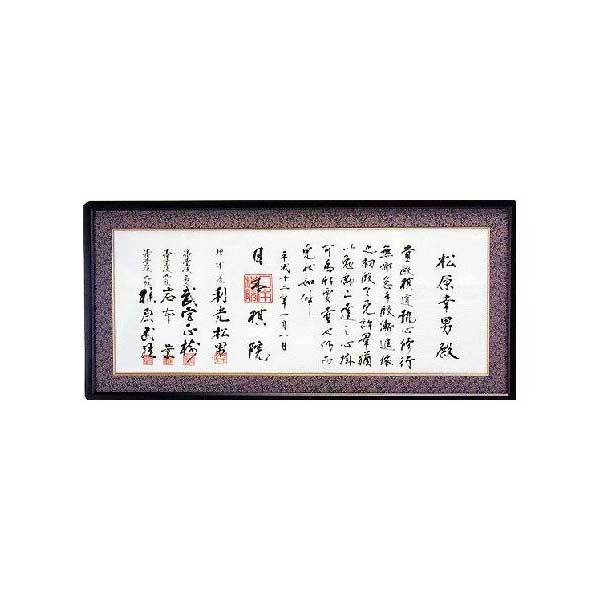 松原幸男殿
貴殿棋道執心修行
無懈怠手段漸進依
之初段令免許畢猶
以勉勵上達之心掛
可為肝要者也仍而
免状如件
平成十二年一月八日
日本棋院
理事長 利光松男
武宮正樹
岩本薫